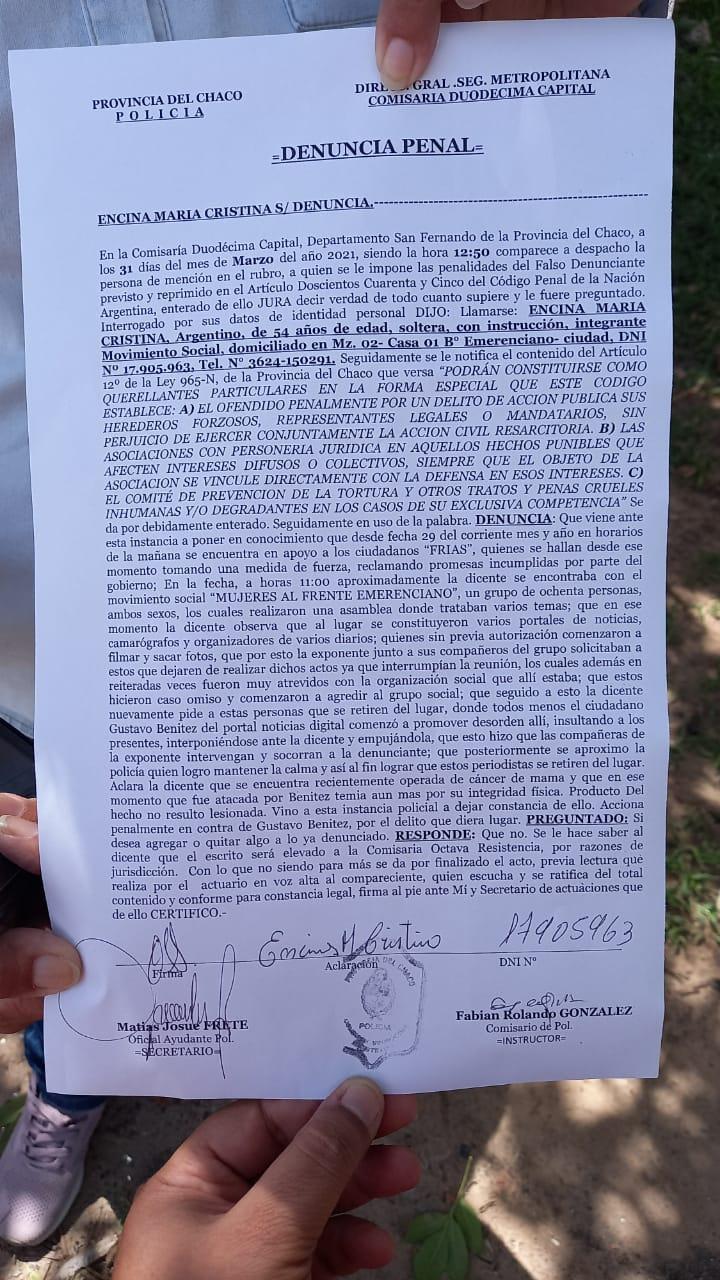 PROVINCIA DEL CHACO
P O L I C I A
GRAL .SEG. METROPOLITANA
COMISARIA DUODECIMA CAPITAL
=DENUNCIA PENAL=
ENCINA MARIA CRISTINA S/ DENUNCIA.-----------------------------------------------------------
En la Comisaría Duodécima Capital, Departamento San Fernando de la Provincia del Chaco, a
los 31 días del mes de Marzo del año 2021, siendo la hora 12:50 comparece a despacho la
persona de mención en el rubro, a quien se le impone las penalidades del Falso Denunciante
previsto y reprimido en el Artículo Doscientos Cuarenta y Cinco del Código Penal de la Nación
Argentina, enterado de ello JURA decir verdad de todo cuanto supiere y le fuere preguntado.
Interrogado por sus datos de identidad personal DIJO: Llamarse: ENCINA MARIA
CRISTINA, Argentino, de 54 años de edad, soltera, con instrucción, integrante
Movimiento Social, domiciliado en Mz. 02- Casa 01 B° Emerenciano- ciudad, DNI
Nº 17.905.963, Tel. N° 3624-150291. Seguidamente se le notifica el contenido del Artículo
12º de la Ley 965-N, de la Provincia del Chaco que versa “PODRÁN CONSTITUIRSE COMO
QUERELLANTES PARTICULARES EN LA FORMA ESPECIAL QUE ESTE CODIGO
ESTABLECE: A) EL OFENDIDO PENALMENTE POR UN DELITO DE ACCION PUBLICA SUS
HEREDEROS FORZOSOS, REPRESENTANTES LEGALES O MANDATARIOS, SIN
PERJUICIO DE EJERCER CONJUNTAMENTE LA ACCION CIVIL RESARCITORIA. B) LAS
ASOCIACIONES CON PERSONERIA JURIDICA EN AQUELLOS HECHOS PUNIBLES QUE
AFECTEN INTERESES DIFUSOS O COLECTIVOS, SIEMPRE QUE EL OBJETO DE LA
ASOCIACION SE VINCULE DIRECTAMENTE CON LA DEFENSA EN ESOS INTERESES. C)
EL COMITÉ DE PREVENCION DE LA TORTURA Y OTROS TRATOS Y PENAS CRUELES
INHUMANAS Y/O DEGRADANTES EN LOS CASOS DE SU EXCLUSIVA COMPETENCIA” Se
da por debidamente enterado. Seguidamente en uso de la palabra. DENUNCIA: Que viene ante
esta instancia a poner en conocimiento que desde fecha 29 del corriente mes y año en horarios
de la mañana se encuentra en apoyo a los ciudadanos “FRIAS”, quienes se hallan desde ese
momento tomando una medida de fuerza, reclamando promesas incumplidas por parte del
gobierno; En la fecha, a horas 11:00 aproximadamente la dicente se encontraba con el
movimiento social “MUJERES AL FRENTE EMERENCIANO”, un grupo de ochenta personas,
ambos sexos, los cuales realizaron una asamblea donde trataban varios temas; que en ese
momento la dicente observa que al lugar se constituyeron varios portales de noticias,
camarógrafos y organizadores de varios diarios; quienes sin previa autorización comenzaron a
filmar y sacar fotos, que por esto la exponente junto a sus compañeros del grupo solicitaban a
estos que dejaren de realizar dichos actos ya que interrumpían la reunión, los cuales además en
reiteradas veces fueron muy atrevidos con la organización social que allí estaba; que estos
hicieron caso omiso y comenzaron a agredir al grupo social; que seguido a esto la dicente
nuevamente pide a estas personas que se retiren del lugar, donde todos menos el ciudadano
Gustavo Benitez del portal noticias digital comenzó a promover desorden allí, insultando a los
presentes, interponiéndose ante la dicente y empujándola, que esto hizo que las compañeras de
la exponente intervengan y socorran a la denunciante; que posteriormente se aproximo la
policía quien logro mantener la calma y así al fin lograr que estos periodistas se retiren del lugar.
Aclara la dicente que se encuentra recientemente operada de cáncer de mama y que en ese
momento que fue atacada por Benitez temia aun mas por su integridad física. Producto Del
hecho no resulto lesionada. Vino a esta instancia policial a dejar constancia de ello. Acciona
penalmente en contra de Gustavo Benitez, por el delito que diera lugar. PREGUNTADO: Si
desea agregar o quitar algo a lo ya denunciado. RESPONDE: Que no. Se le hace saber al
dicente que el escrito será elevado a la Comisaria Octava Resistencia, por razones de
jurisdicción. Con lo que no siendo para más se da por finalizado el acto, previa lectura que
realiza por el actuario en voz alta al compareciente, quien escucha y se ratifica del total
contenido y conforme para constancia legal, firma al pie ante Mí y Secretario de actuaciones que
de ello CERTIFICO.-
Encina M Cristina 17905963
Firma Aclaración DNI Nº
Matias Josue FRETE
Oficial Ayudante Pol.
=SECRETARIO=
PROVINCIA DEL CHACO
POLICIA
Fabian Rolando GONZALEZ
Comisario de Pol.
=INSTRUCTOR=